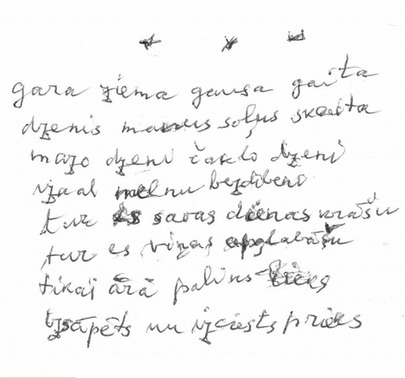 gara ziema gausa gaita
dzenis manus soļus skaita
mazo dzeni čaklo dzeni
izkal melnu bezdibeni
tur es savas dienas krāšu
tur es viņas apglabāšu
tikai ārā paliks
izsāpēts un izciests prieks